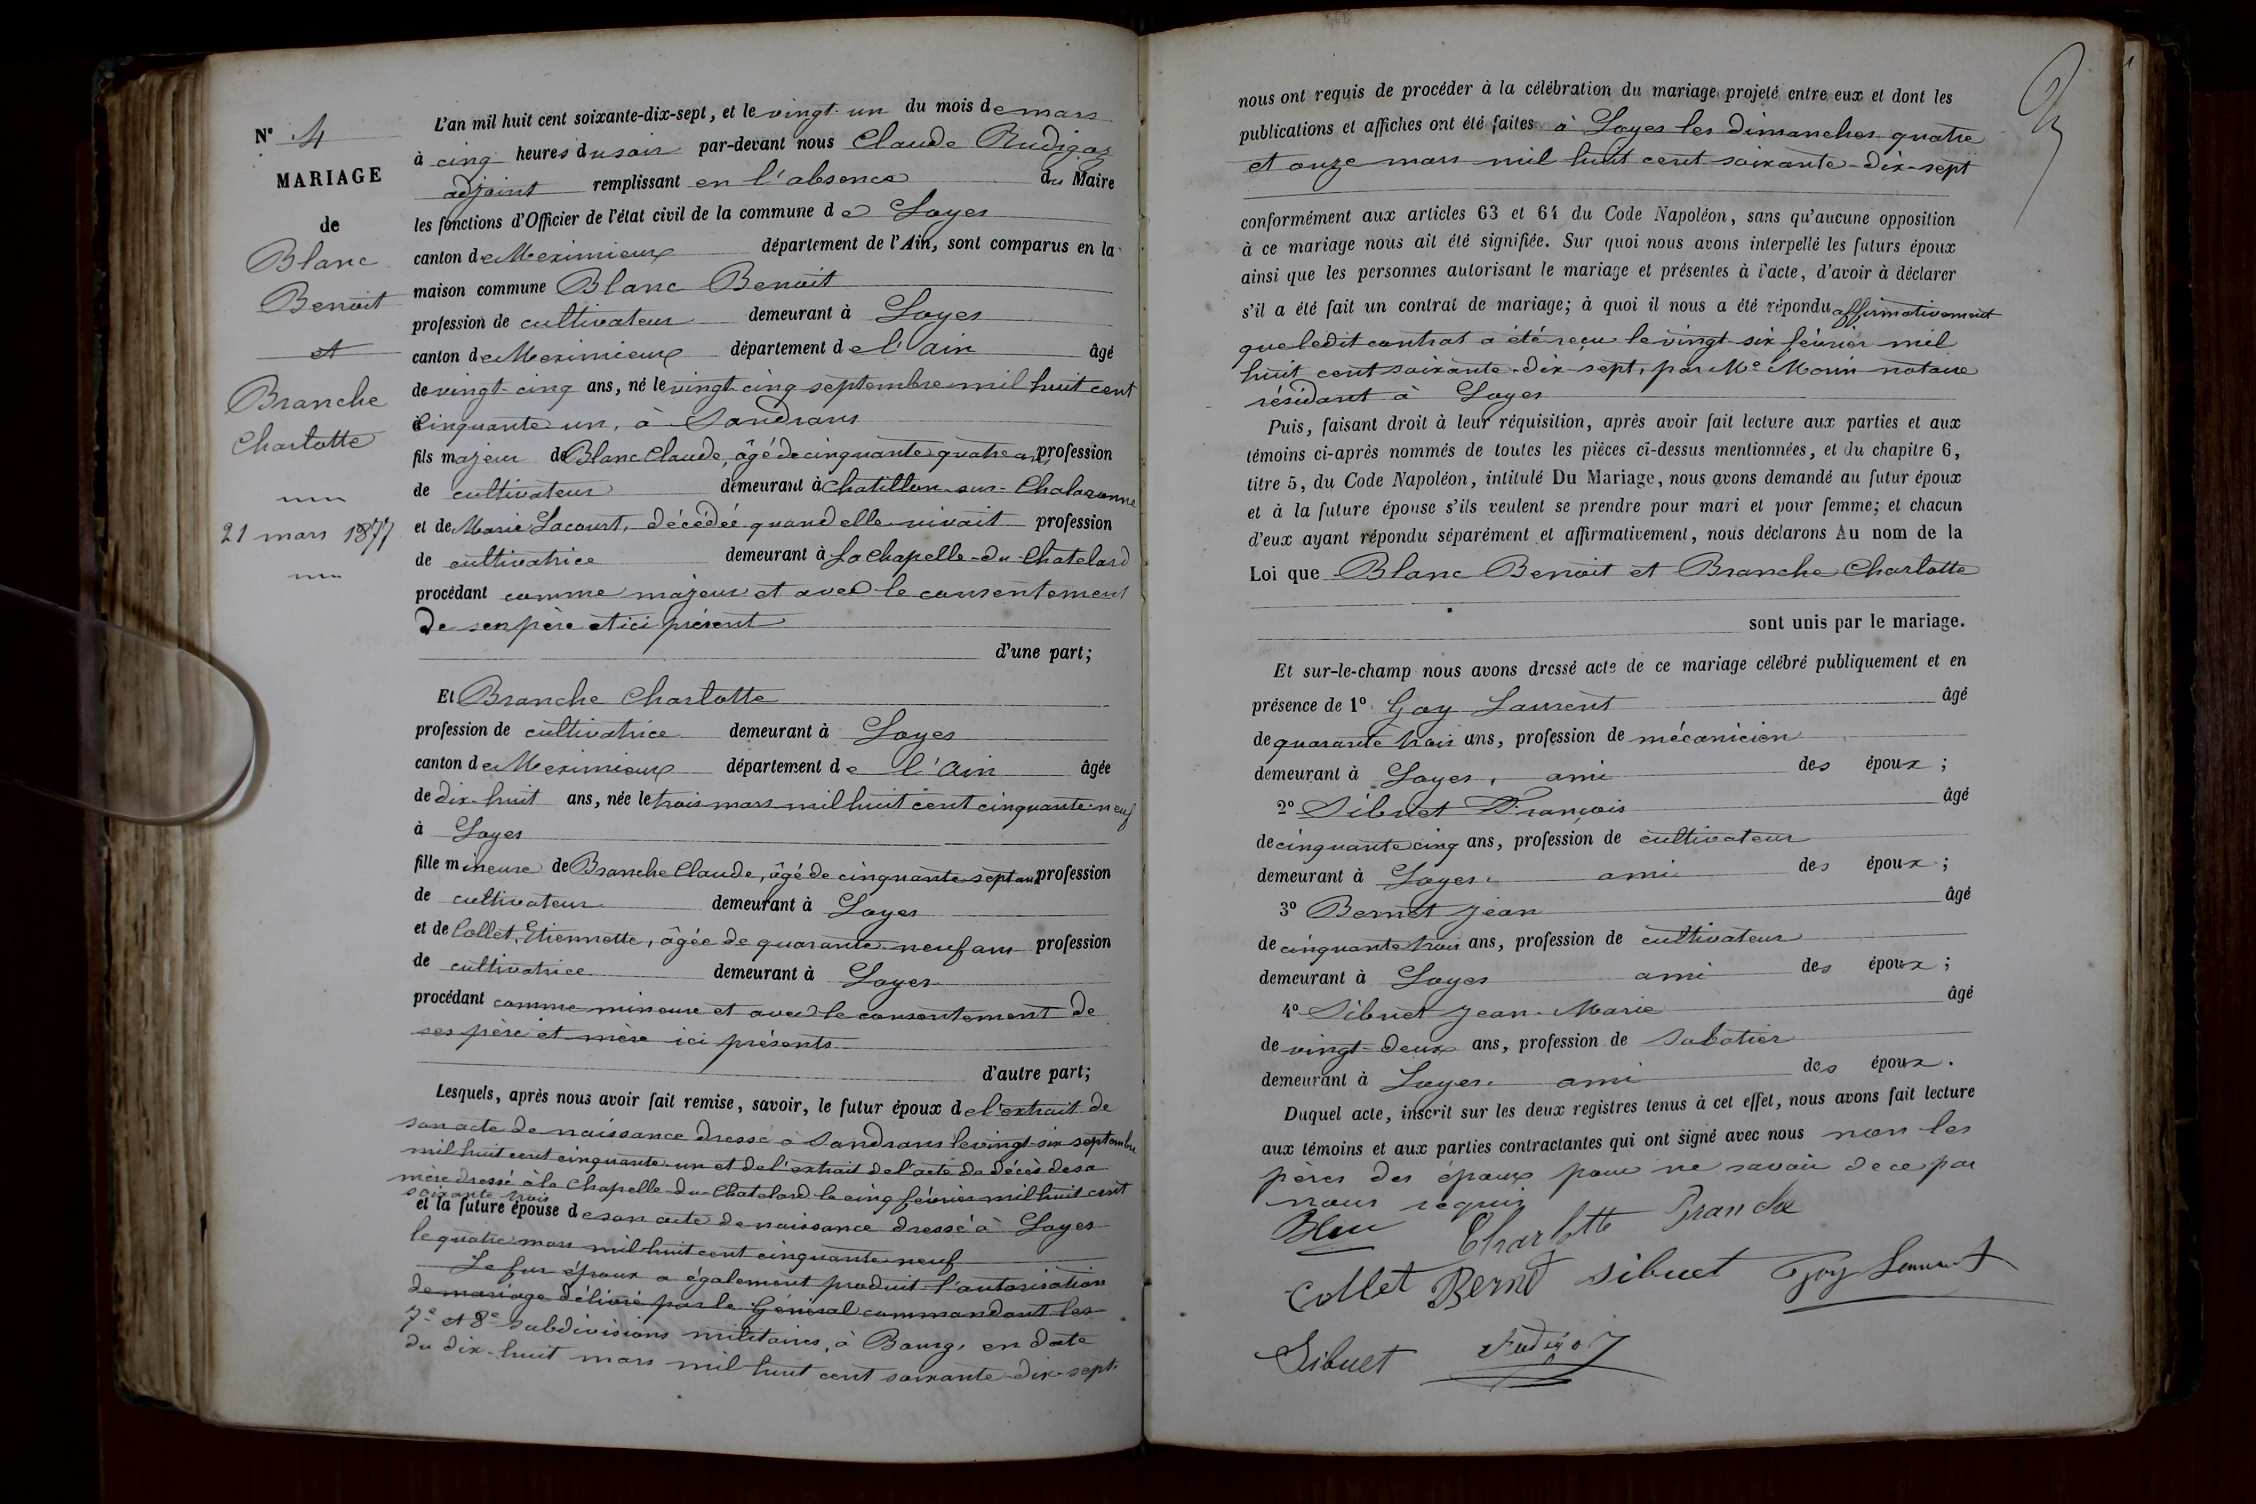 N° 4
MARIAGE
de
Blanc
Benoit
et
Branche
Charlotte
21 mars 1877
L'an mil huit cent soixante-dix-sept, et le vingt-un du mois de mars
à cinq heures du soir par-devant nous Claude Rudigoz
adjoint remplissant en l'absence du Maire
les fonctions d'Officier de l'état civil de la commune de Loyes
canton de Meximieux département de l'Ain, sont comparus en la
maison commune Blanc Benoit
profession de cultivateur demeurant à Loyes
canton de Meximieux département de l'ain âgé
de vingt-cinq ans, né le vingt-cinq septembre mil huit cent
cinquante un, à Sandrans
fils majeur de Blanc Claude, âgé de cinquante quatre ans profession
de cultivateur demeurant à Chatillon-sur-Chalaronne
et de Marie Lacourt, décédée quand elle vivait profession
de cultivatrice demeurant à La Chapelle-du-Chatelard
procédant comme majeur et avec le consentement
de son père et ici présent
d'une part;
Et Branche Charlotte
profession de cultivatrice demeurant à Loyes
canton de Meximieux département de l'Ain âgée
de dix-huit ans, née le trois mars mil huit cent cinquante-neuf
à Loyes
fille mineure de Branche Claude, âgé de cinquante-sept ans profession
de cultivateur demeurant à Loyes
et de Collet, Etiennette, âgée de quarante-neuf ans profession
de cultivatrice demeurant à Loyes
procédant comme mineure et avec le consentement de
ses père et mère ici présents
d'autre part;
Lesquels, après nous avoir fait remise, savoir, le futur époux de l'extrait de
son acte de naissance dressé à Sandrans le vingt-six septembre
mil huit cent cinquante-un et de l'extrait de l'acte de décès de sa
mère dressé à la Chapelle-du-Chatelard le cinq février mil huit cent
soixante trois
et la future épouse de son acte de naissance dressé à Loyes
le quatre mars mil huit cent cinquante neuf
Le fur époux a également produit l'autorisation
de mariage délivré par le Général commandant les
7e et 8e subdivisions militaires, à Bourg, en date
du dix-huit mars mil huit cent soixante-dix-sept
nous ont requis de procéder à la célébration du mariage projeté entre eux et dont les
publications et affiches ont été faites à Loyes les dimanches quatre
et onze mars mil huit cent soixante-dix-sept
conformément aux articles 63 et 64 du Code Napoléon, sans qu'aucune opposition
à ce mariage nous ait été signifiée. Sur quoi nous avons interpellé les futurs époux
ainsi que les personnes autorisant le mariage et présentes à l'acte, d'avoir à déclarer
s'il a été fait un contrat de mariage; à quoi il nous a été répondu affirmativement
que ledit contrat a été reçu le vingt-six février mil
huit cent soixante-dix-sept, par Me Morin notaire
résidant à Loyes
Puis, faisant droit à leur réquisition, après avoir fait lecture aux parties et aux
témoins ci-après nommés de toutes les pièces ci-dessus mentionnées, et du chapitre 6,
titre 5, du Code Napoléon, intitulé Du Mariage, nous avons demandé au futur époux
et à la future épouse s'ils veulent se prendre pour mari et pour femme; et chacun
d'eux ayant répondu séparément et affirmativement, nous déclarons Au nom de la
Loi que Blanc Benoit et Branche Charlotte
sont unis par le mariage.
Et sur-le-champ nous avons dressé acte de ce mariage célébré publiquement et en
présence de 1° Goy Laurent âgé
de quarante trois ans, profession de mécanicien
demeurant à Loyes, ami des époux;
2° Sibuet François âgé
de cinquante cinq ans, profession de cultivateur
demeurant à Loyes ami des époux;
3° Bernet Jean âgé
de cinquante trois ans, profession de cultivateur
demeurant à Loyes ami des époux;
4° Sibuet Jean-Marie âgé
de vingt-deux ans, profession de sabotier
demeurant à Loyes ami des époux.
Duquel acte, inscrit sur les deux registres tenus à cet effet, nous avons fait lecture
aux témoins et aux parties contractantes qui ont signé avec nous non les
pères des époux pour ne savoir de ce par
nous requis
Charlotte Branche
Collet Bernet Sibuet Goy Laurent
Sibuet Rudigoz